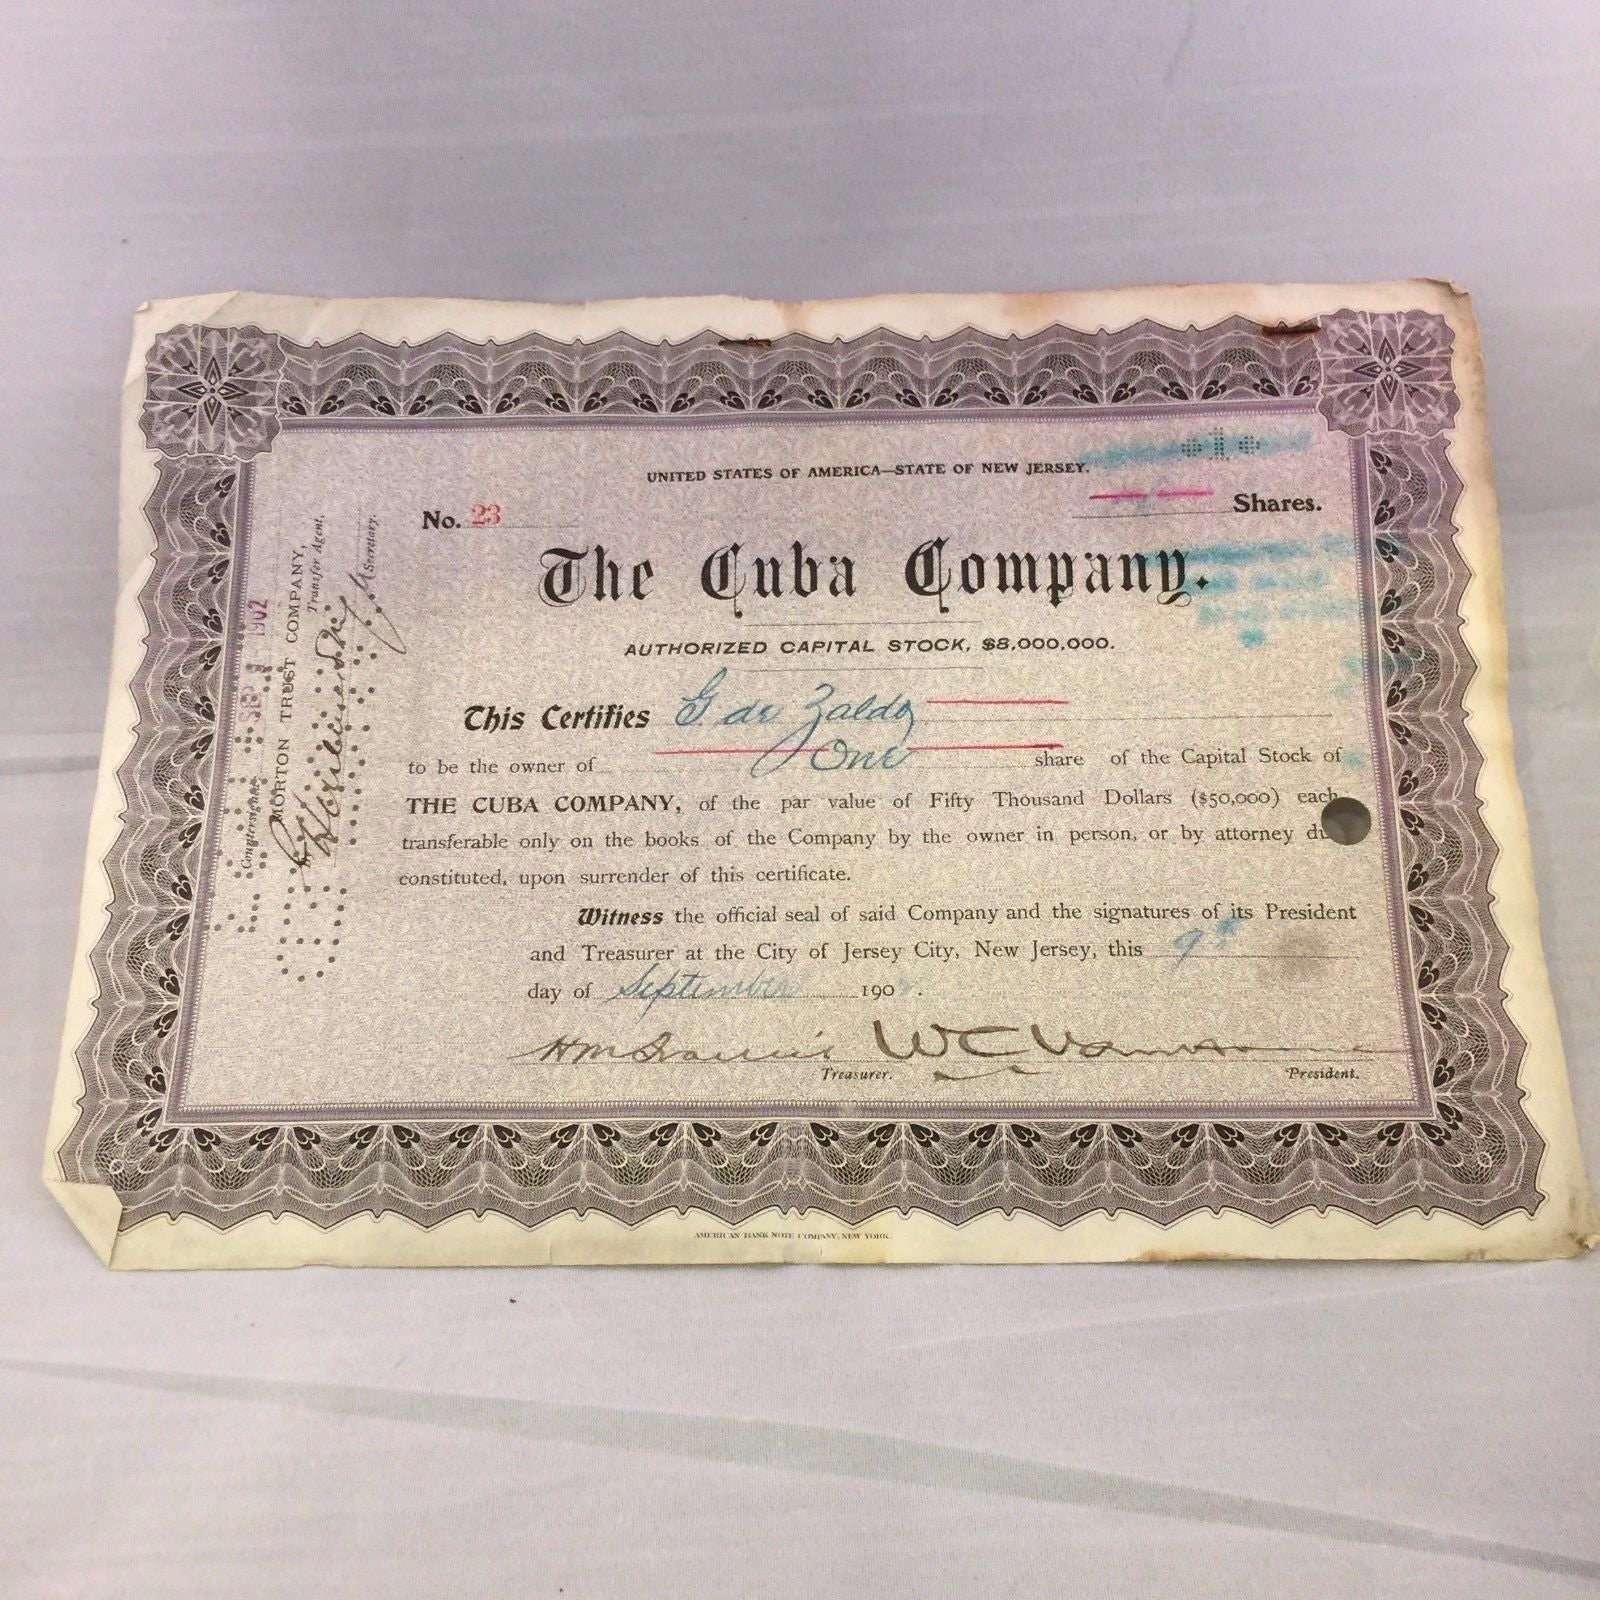 +1+
UNITED STATES OF AMERICA—STATE OF NEW JERSEY.
No. 23
Shares.
The Cuba Company.
AUTHORIZED CAPITAL STOCK, $8,000,000.
This Certifies G de Zaldo
to be the owner of One share of the Capital Stock of
THE CUBA COMPANY, of the par value of Fifty Thousand Dollars ($50,000) each,
transferable only on the books of the Company by the owner in person, or by attorney du
constituted, upon surrender of this certificate.
Witness the official seal of said Company and the signatures of its President
and Treasurer at the City of Jersey City, New Jersey, this 9th
day of September 190 .
W C Van Horne
Treasurer.
President.
AMERICAN BANK NOTE COMPANY, NEW YORK.
Countersigned SEP 1902
MORTON TRUST COMPANY,
Transfer Agent,
Secretary.